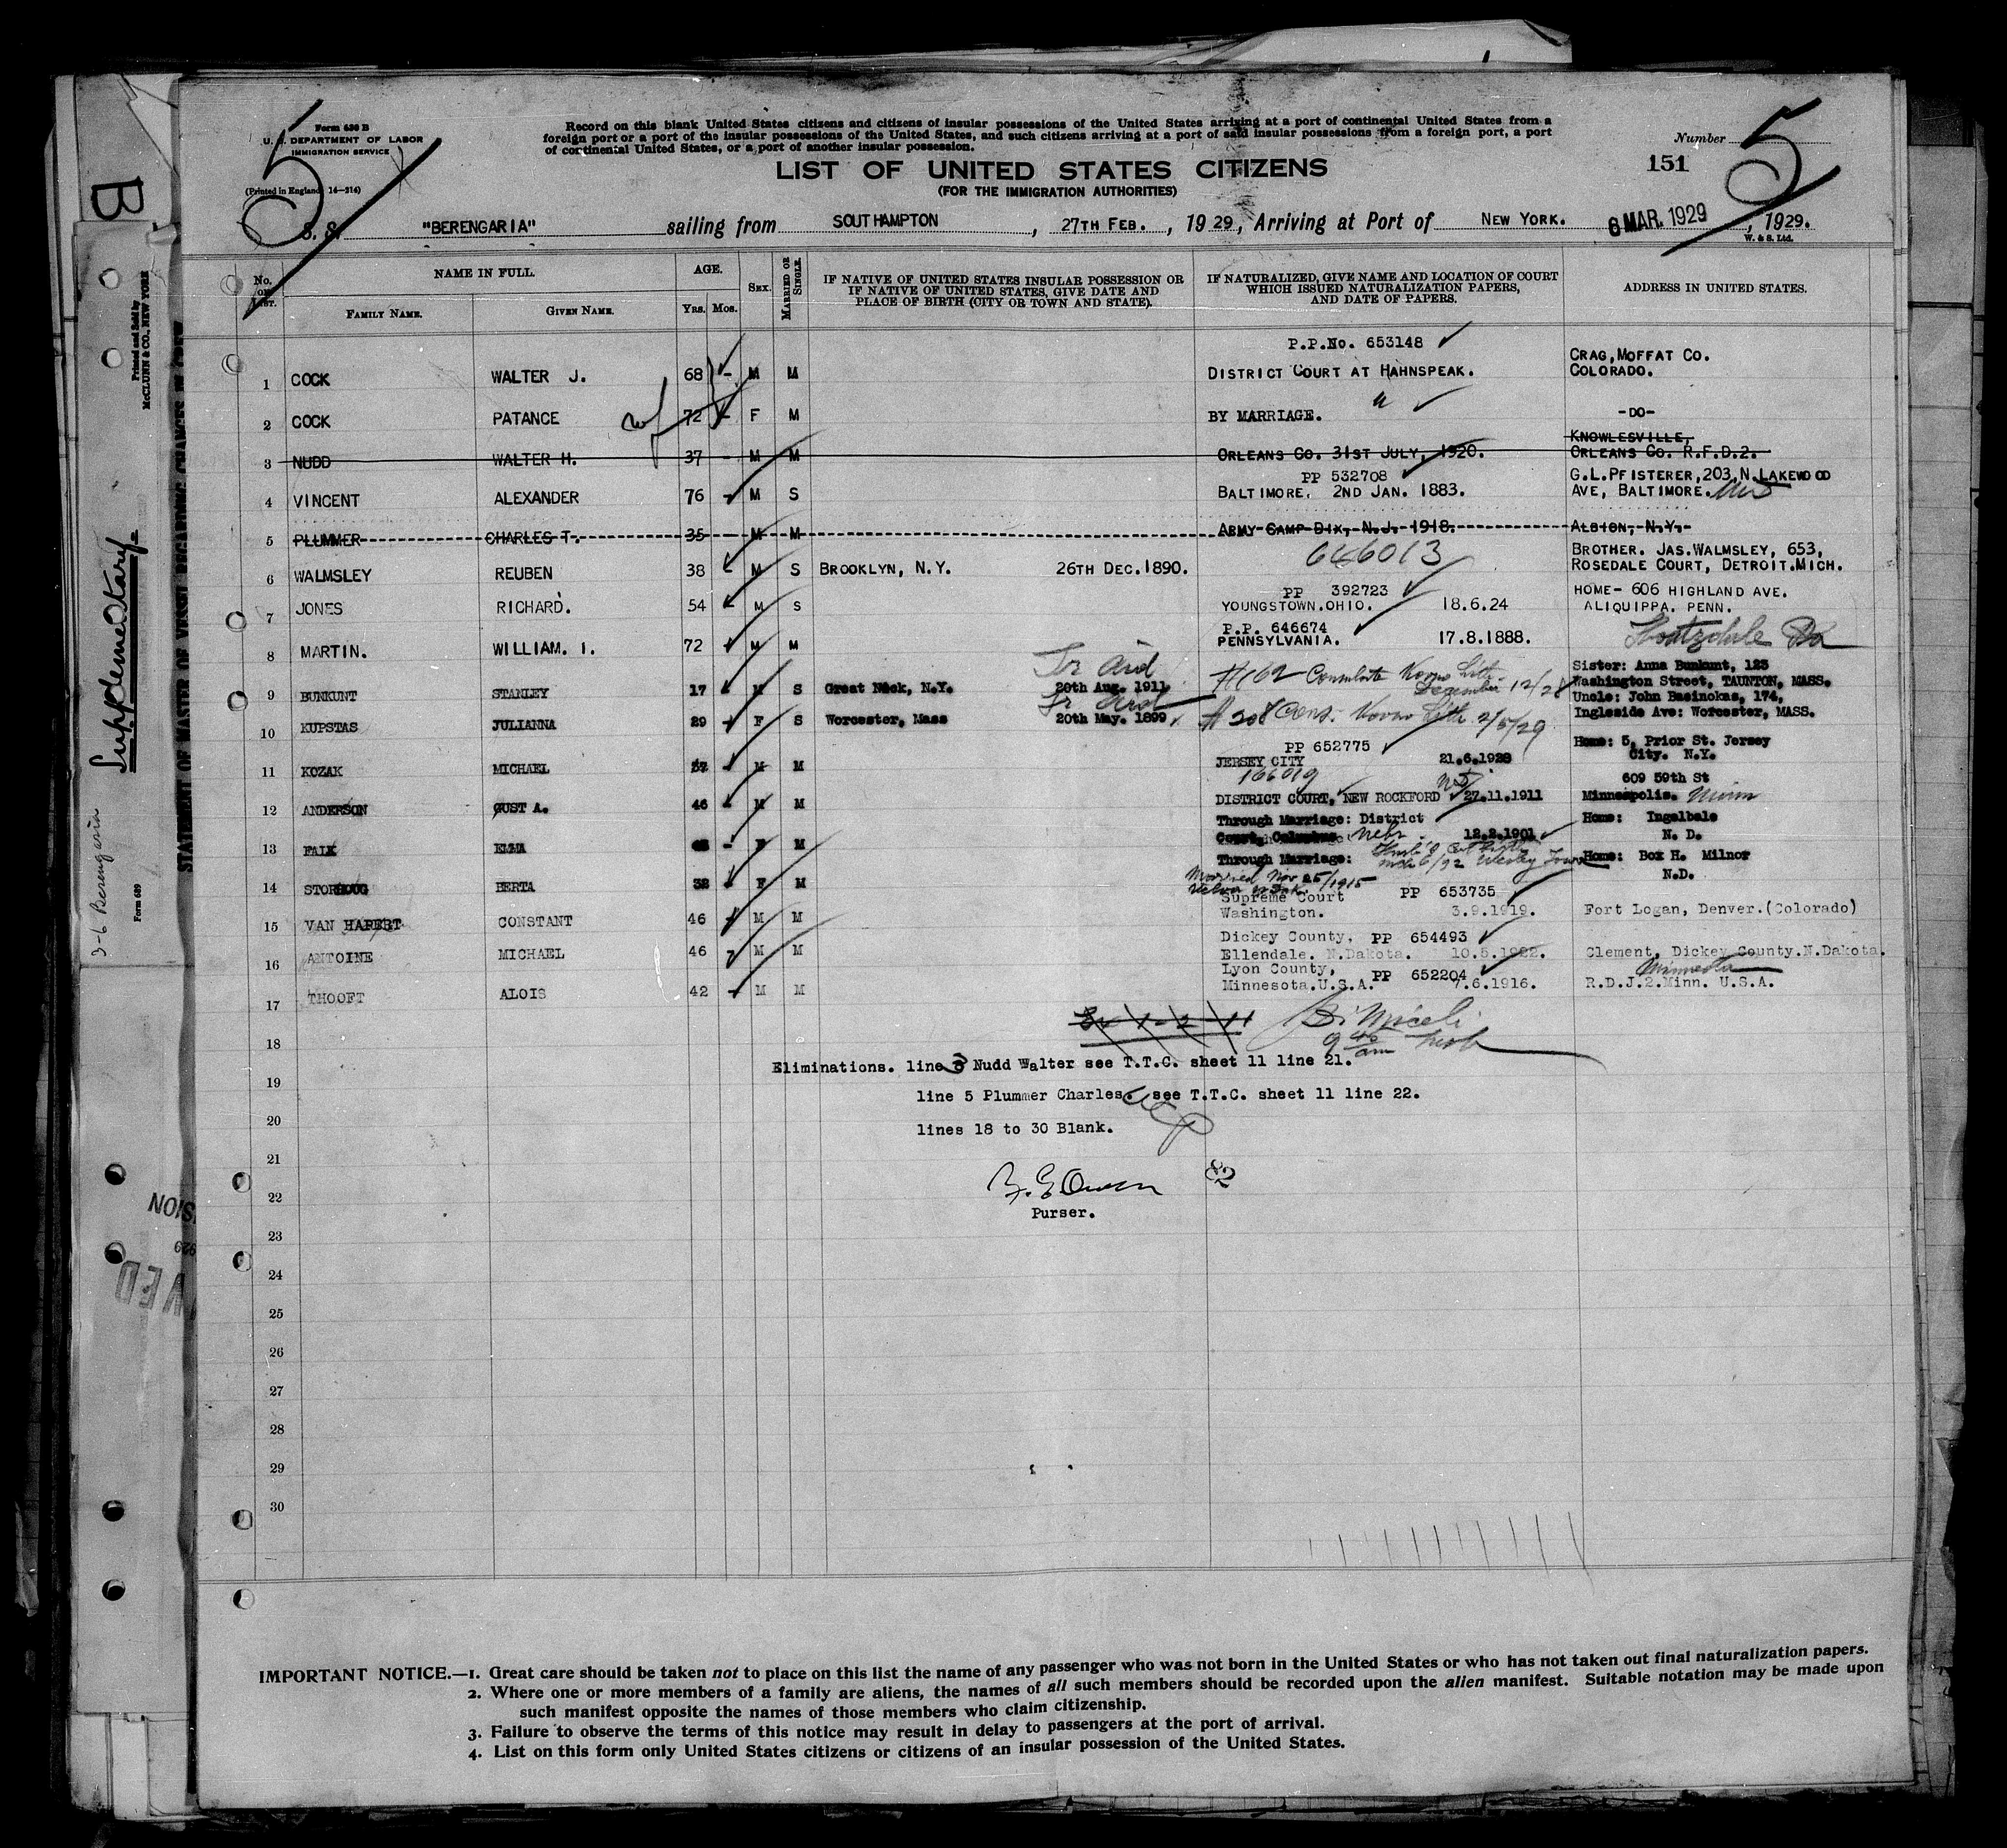 Form 630 B
U. S. DEPARTMENT OF LABOR
IMMIGRATION SERVICE
(Printed in England 14—214)
Record on this blank United States citizens and citizens of insular possessions of the United States arriving at a port of continental United States from a
foreign port or a port of the insular possessions of the United States, and such citizens arriving at a port of said insular possessions from a foreign port, a port
of continental United States, or a port of another insular possession.
Number 5
151
5
LIST OF UNITED STATES CITIZENS
(FOR THE IMMIGRATION AUTHORITIES)
S. S. "BERENGARIA" sailing from SOUTHAMPTON, 27TH FEB., 1929, Arriving at Port of NEW YORK. 6 MAR. 1929, 1929.
W. & S. Ltd.
No. on List. NAME IN FULL. AGE. SEX. MARRIED OR SINGLE. IF NATIVE OF UNITED STATES INSULAR POSSESSION OR IF NATIVE OF UNITED STATES, GIVE DATE AND PLACE OF BIRTH (CITY OR TOWN AND STATE). IF NATURALIZED, GIVE NAME AND LOCATION OF COURT WHICH ISSUED NATURALIZATION PAPERS, AND DATE OF PAPERS. ADDRESS IN UNITED STATES.
FAMILY NAME. GIVEN NAME. Yrs. Mos.
P.P.No. 653148
1 COCK WALTER J. 68 - M M DISTRICT COURT AT HAHNSPEAK. CRAG, MOFFAT CO. COLORADO.
2 COCK PATANCE 72 - F M BY MARRIAGE. " -DO-
3 NUDD WALTER H. 37 - M M ORLEANS CO. 31ST JULY, 1920. KNOWLESVILLE, ORLEANS CO. R.F.D.2.
PP 532708
4 VINCENT ALEXANDER 76 - M S BALTIMORE. 2ND JAN. 1883. G.L.PFISTERER,203,N.LAKEWOOD AVE, BALTIMORE.
5 PLUMMER CHARLES T. 35 - M M ARMY CAMP DIX, N.J. 1918. ALBION, N.Y.
646013
6 WALMSLEY REUBEN 38 - M S BROOKLYN, N.Y. 26TH DEC.1890. BROTHER. JAS.WALMSLEY, 653, ROSEDALE COURT, DETROIT.MICH.
PP 392723
7 JONES RICHARD. 54 - M S YOUNGSTOWN.OHIO. 18.6.24 HOME- 606 HIGHLAND AVE. ALIQUIPPA. PENN.
P.P. 646674
8 MARTIN. WILLIAM. I. 72 - M M PENNSYLVANIA. 17.8.1888. Houtzdale Pa
9 BUNKUNT STANLEY 17 - M S Great Neck, N.Y. 20th Aug. 1911 #162 Consulate Kovno Lith. December 12/28 Sister: Anna Bunkunt, 123 Washington Street, TAUNTON, MASS.
10 KUPSTAS JULIANNA 29 - F S Worcester, Mass 20th May. 1899 # 208 Cons. Kovno Lith 2/5/29 Uncle: John Basinokas, 174, Ingleside Ave: Worcester, MASS.
PP 652775
11 KOZAK MICHAEL 37 - M M JERSEY CITY 21.6.1928 Home: 5, Prior St. Jersey City. N.Y.
166019
12 ANDERSON GUST A. 46 - M M DISTRICT COURT, NEW ROCKFORD 27.11.1911 609 59th St Minneapolis. Minn
13 FALK EMMA - F M Through Marriage: District Court, Columbus Nebr. 12.2.1901 Home: Ingelbale N. D.
14 BERTA 32 - F M Through Marriage: Married Nov 25/1915 Home: Box H. Milnor N.D.
PP 653735
15 VAN HAPERT CONSTANT 46 M M Supreme Court Washington. 3.9.1919. Fort Logan, Denver.(Colorado)
16 ANTOINE MICHAEL 46 - M M Dickey County, PP 654493 Ellendale. N.Dakota. 10.5.1922. Clement, Dickey County.N.Dakota.
17 THOOFT ALOIS 42 - M M Lyon County, PP 652204 Minnesota.U.S.A. 7.6.1916. Minneota R.D.J.2.Minn. U.S.A.
18
Eliminations. line 3 Nudd Walter see T.T.C. sheet 11 line 21.
19
line 5 Plummer Charles. see T.T.C. sheet 11 line 22.
20
lines 18 to 30 Blank.
21
82
22
Purser.
23
24
25
26
27
28
29
30
IMPORTANT NOTICE.—1. Great care should be taken not to place on this list the name of any passenger who was not born in the United States or who has not taken out final naturalization papers.
2. Where one or more members of a family are aliens, the names of all such members should be recorded upon the alien manifest. Suitable notation may be made upon
such manifest opposite the names of those members who claim citizenship.
3. Failure to observe the terms of this notice may result in delay to passengers at the port of arrival.
4. List on this form only United States citizens or citizens of an insular possession of the United States.
B
Supplementary
3-6 Berengaria
Form 689
Printed and Sold by
McCLUNN & CO., NEW YORK